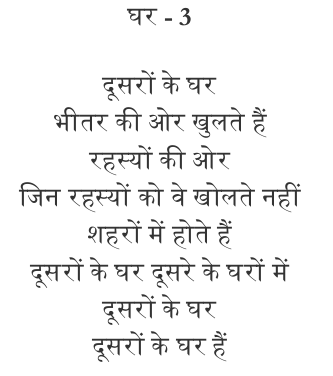 घर - 3
दूसरों के घर
भीतर की ओर खुलते हैं
रहस्यों की ओर
जिन रहस्यों को वे खोलते नहीं
शहरों में होते हैं
दूसरों के घर दूसरे के घरों में
दूसरों के घर
दूसरों के घर हैं